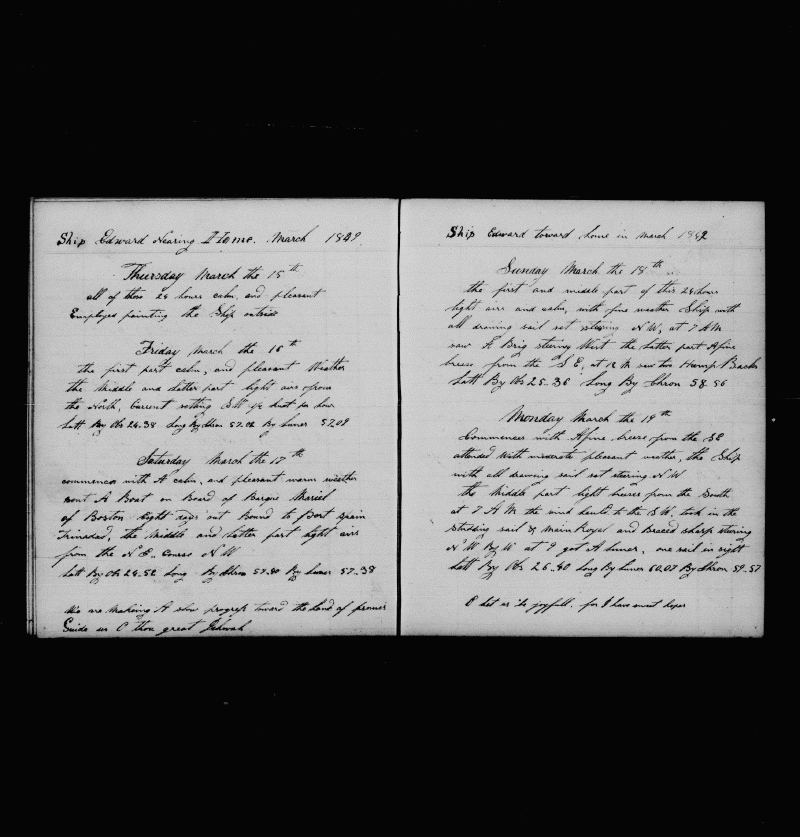 Ship Edward Nearing Home. March 1849.
Thursday March the 15th
all of these 24 hours calm, and pleasant
Employed painting the Ship outside
Friday March the 16th
the first part calm, and pleasant Weather
the Middle and latter part light airs from
the North, Current setting SW 1/2 knot per hour
Latt By Obs 24.38 Long By Chron 57.02 By Luner 57.09
Saturday March the 17th
commences with A calm, and pleasant warm weather
sent A Boat on Board of Barque Mariel
of Boston Eight days out Bound to Port Spain
Trinadad, the Middle and latter part light airs
from the N E. Course N W
Latt By Obs 24-52 Long By Chron 57.40 By Luner 57-38
We are Making A slow progress toward the Land of promis
Guide us O thou great Jehovah
Ship Edward toward home in March 1849
Sunday March the 18th
the first and middle part of this 24 hours
light airs and calm, with fine weather Ship with
all drawing sail set steering N W, at 7 A M
saw A Brig stering West the Latter part A fine
breese from the S E, at 12 M saw two Hump Backs
Latt By Obs 25-36 Long By Chron 58-56
Monday March the 19th
Commences with A fine breese from the SE
attended With moderate pleasant weather, the Ship
with all drawing sail set steering N W
the Middle part light breses from the South
at 7 A M the wind hauld to the SW, took in the
Studding sail & Main Royal and Braced sharp steering
N W By W at 9 got A Luner, one sail in sight
Latt By Obs 26-40 Long By Luner 60.07 By Chron 59-57
O let us be joyfull. for I have sweet hopes